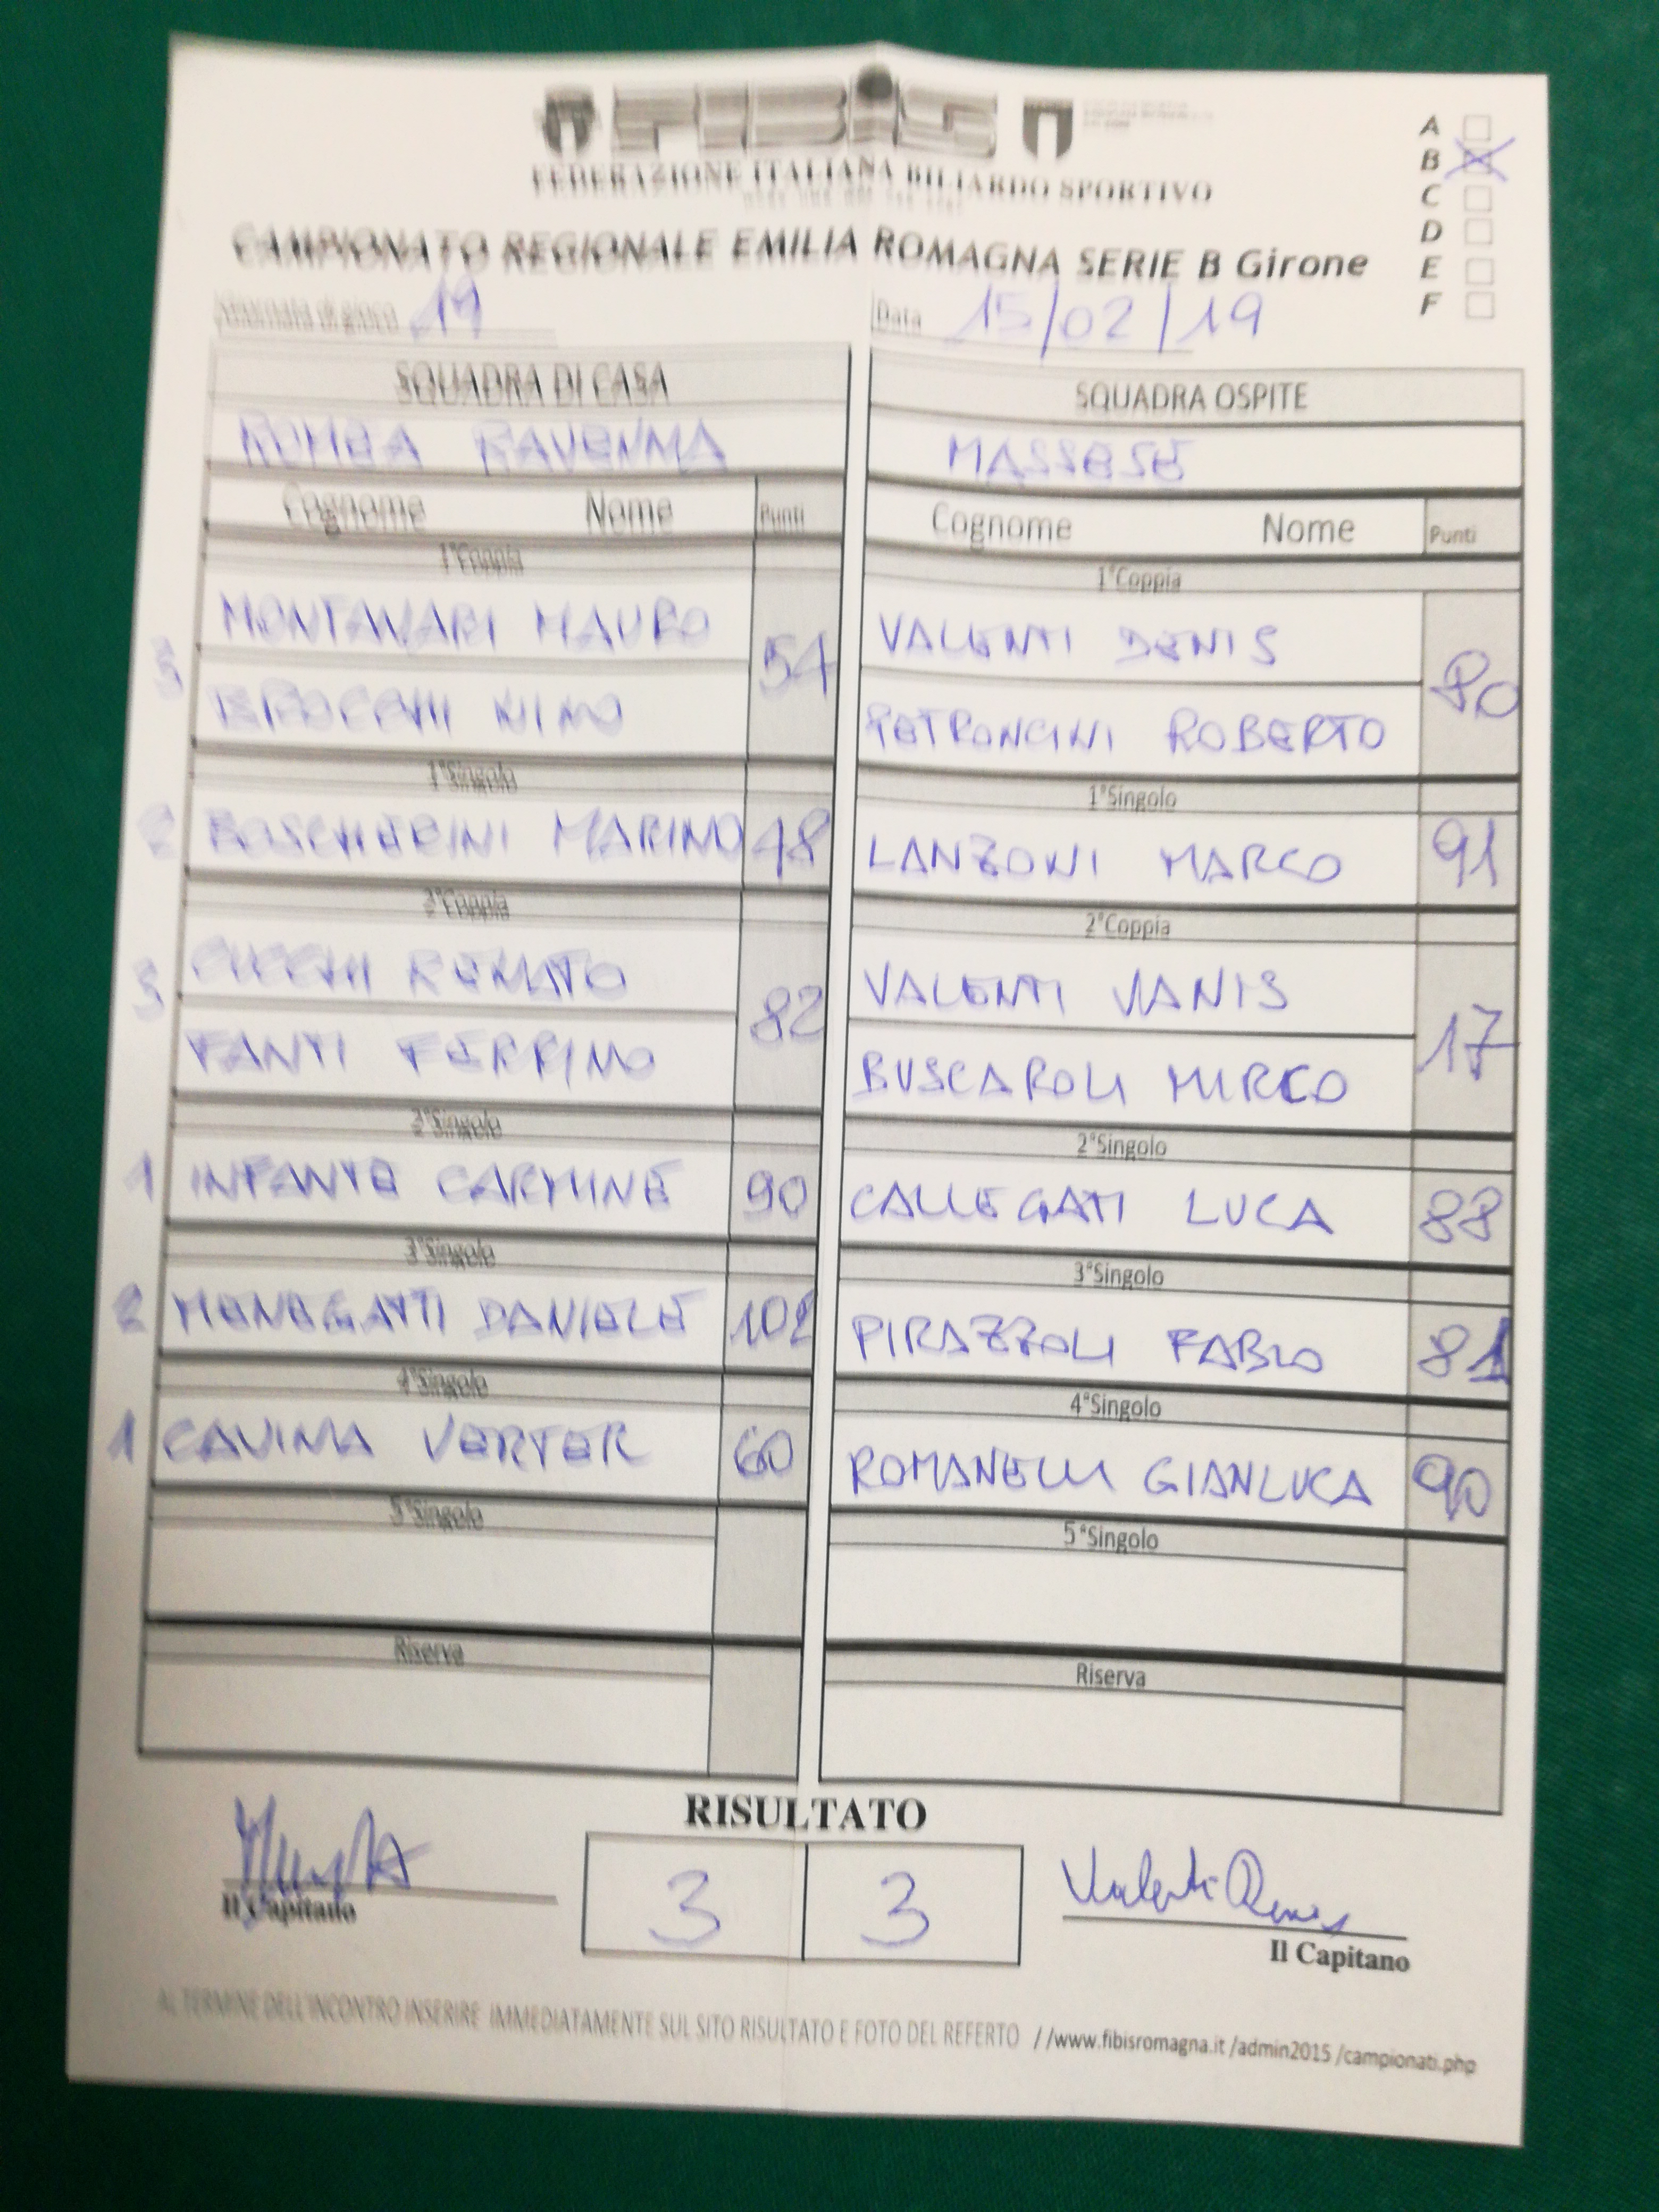 FIBiS
FEDERAZIONE ITALIANA BILIARDO SPORTIVO
A
B
C
D
E
F
CAMPIONATO REGIONALE EMILIA ROMAGNA SERIE B Girone
Giornata di gioco 19
Data 15/02/19
SQUADRA DI CASA SQUADRA OSPITE
ROMEA RAVENNA MASSESE
Cognome Nome Punti Cognome Nome Punti
1°Coppia 1°Coppia
3 MONTANARI MAURO 54 VALENTI DENIS 80
NINO PETRONCINI ROBERTO
1°Singolo 1°Singolo
2 BOSCHERINI MARINO 48 LANZONI MARCO 91
2°Coppia 2°Coppia
3 CICCHI RENATO 82 VALENTI VANIS 17
FANTI FERRINO BUSCAROLI MIRCO
2°Singolo 2°Singolo
1 INFANTE CARMINE 90 CALLEGATI LUCA 88
3°Singolo 3°Singolo
2 MENEGATTI DANIELE 102 PIRAZZOLI FABIO 81
4°Singolo 4°Singolo
1 CAVINA VERTER 60 ROMANELLI GIANLUCA 90
5°Singolo 5°Singolo
Riserva Riserva
RISULTATO
3 3
Valenti Denis
Il Capitano Il Capitano
AL TERMINE DELL'INCONTRO INSERIRE IMMEDIATAMENTE SUL SITO RISULTATO E FOTO DEL REFERTO //www.fibisromagna.it /admin2015 /campionati.php